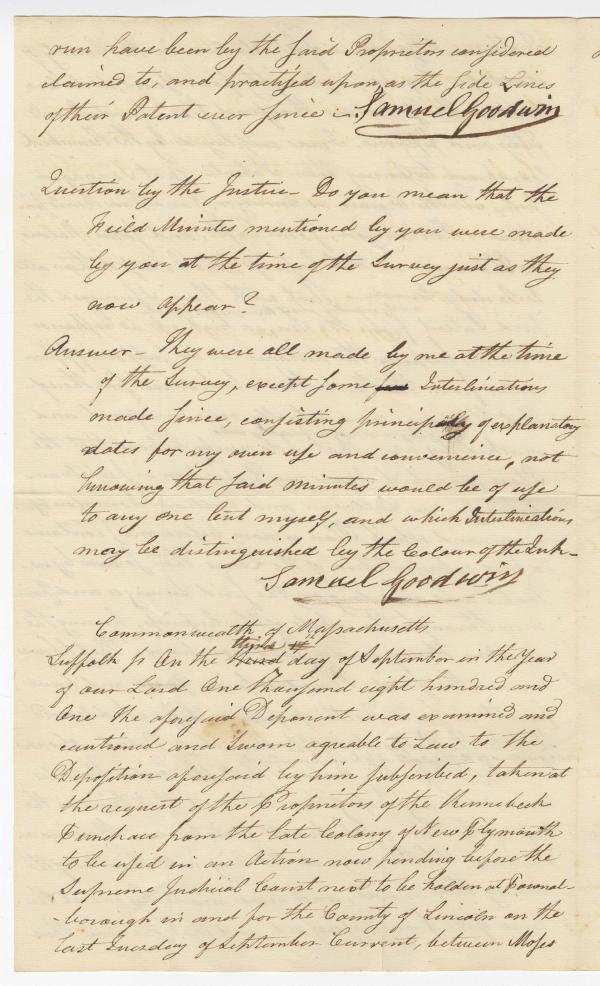 run have been by the said Proprietors considered
claimed to, and practised upon, as the Side Lines
of their Patent ever since :- Samuel Goodwin
Question by the Justice - Do you mean that the
Field Minutes mentioned by you were made
by you at the time of the Survey just as they
now appear?
Answer - They were all made by me at the time
of the Survey, except some Interlineations
made since, consisting principally of explanatory
dates for my own use and convenience, not
knowing that said minutes would be of use
to any one but myself, and which Interlineations
may be distinguished by the Colour of the Ink -
Samuel Goodwin
Commonwealth of Massachusetts
third
Suffolk Ss On the day of September in the Year
of our Lord One Thousand eight hundred and
One the aforesaid Deponent was examined and
cautioned and sworn agreable to Law to the
Deposition aforesaid by him subscribed, taken at
the request of the Proprietors of the Kennebeck
Purchase from the late Colony of New Plymouth
to be used in an Action now pending before the
Supreme Judicial Court next to be holden at Pownal-
-borough in and for the County of Lincoln on the
last Tuesday of September Current, between Moses